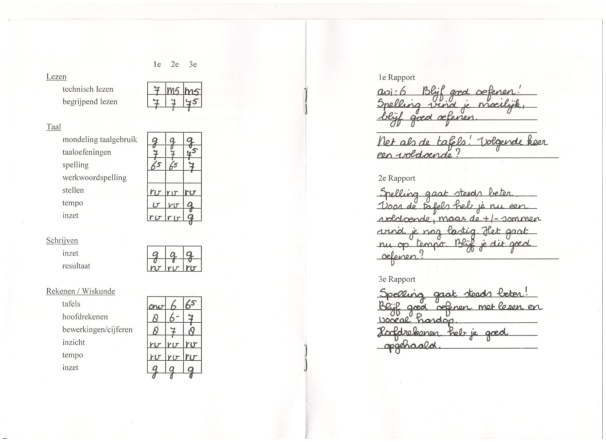 1e 2e 3e
Lezen
technisch lezen 7 m5 m5
begrijpend lezen 7 7 75
Taal
mondeling taalgebruik g g g
taaloefeningen 7 7 75
spelling 65 65 7
werkwoordspelling
stellen rv rv rv
tempo v rv g
inzet rv rv g
Schrijven
inzet g g g
resultaat rv rv rv
Rekenen / Wiskunde
tafels onv 6 65
hoofdrekenen 6- 7
bewerkingen/cijferen 7
inzicht rv rv rv
tempo rv rv rv
inzet g g g
1e Rapport
avi: 6 Blijf goed oefenen!
Spelling vind je moeilijk,
blijf goed oefenen.
Net als de tafels! Volgende keer
een voldoende?
2e Rapport
Spelling gaat steeds beter.
Voor de tafels heb je nu een
voldoende, maar de +/- sommen
vind je nog lastig. Het gaat
nu op tempo. Blijf je dit goed
oefenen?
3e Rapport
Spelling gaat steeds beter!
Blijf goed oefenen met lezen en
vooral hardop.
Hoofdrekenen heb je goed
opgehaald.